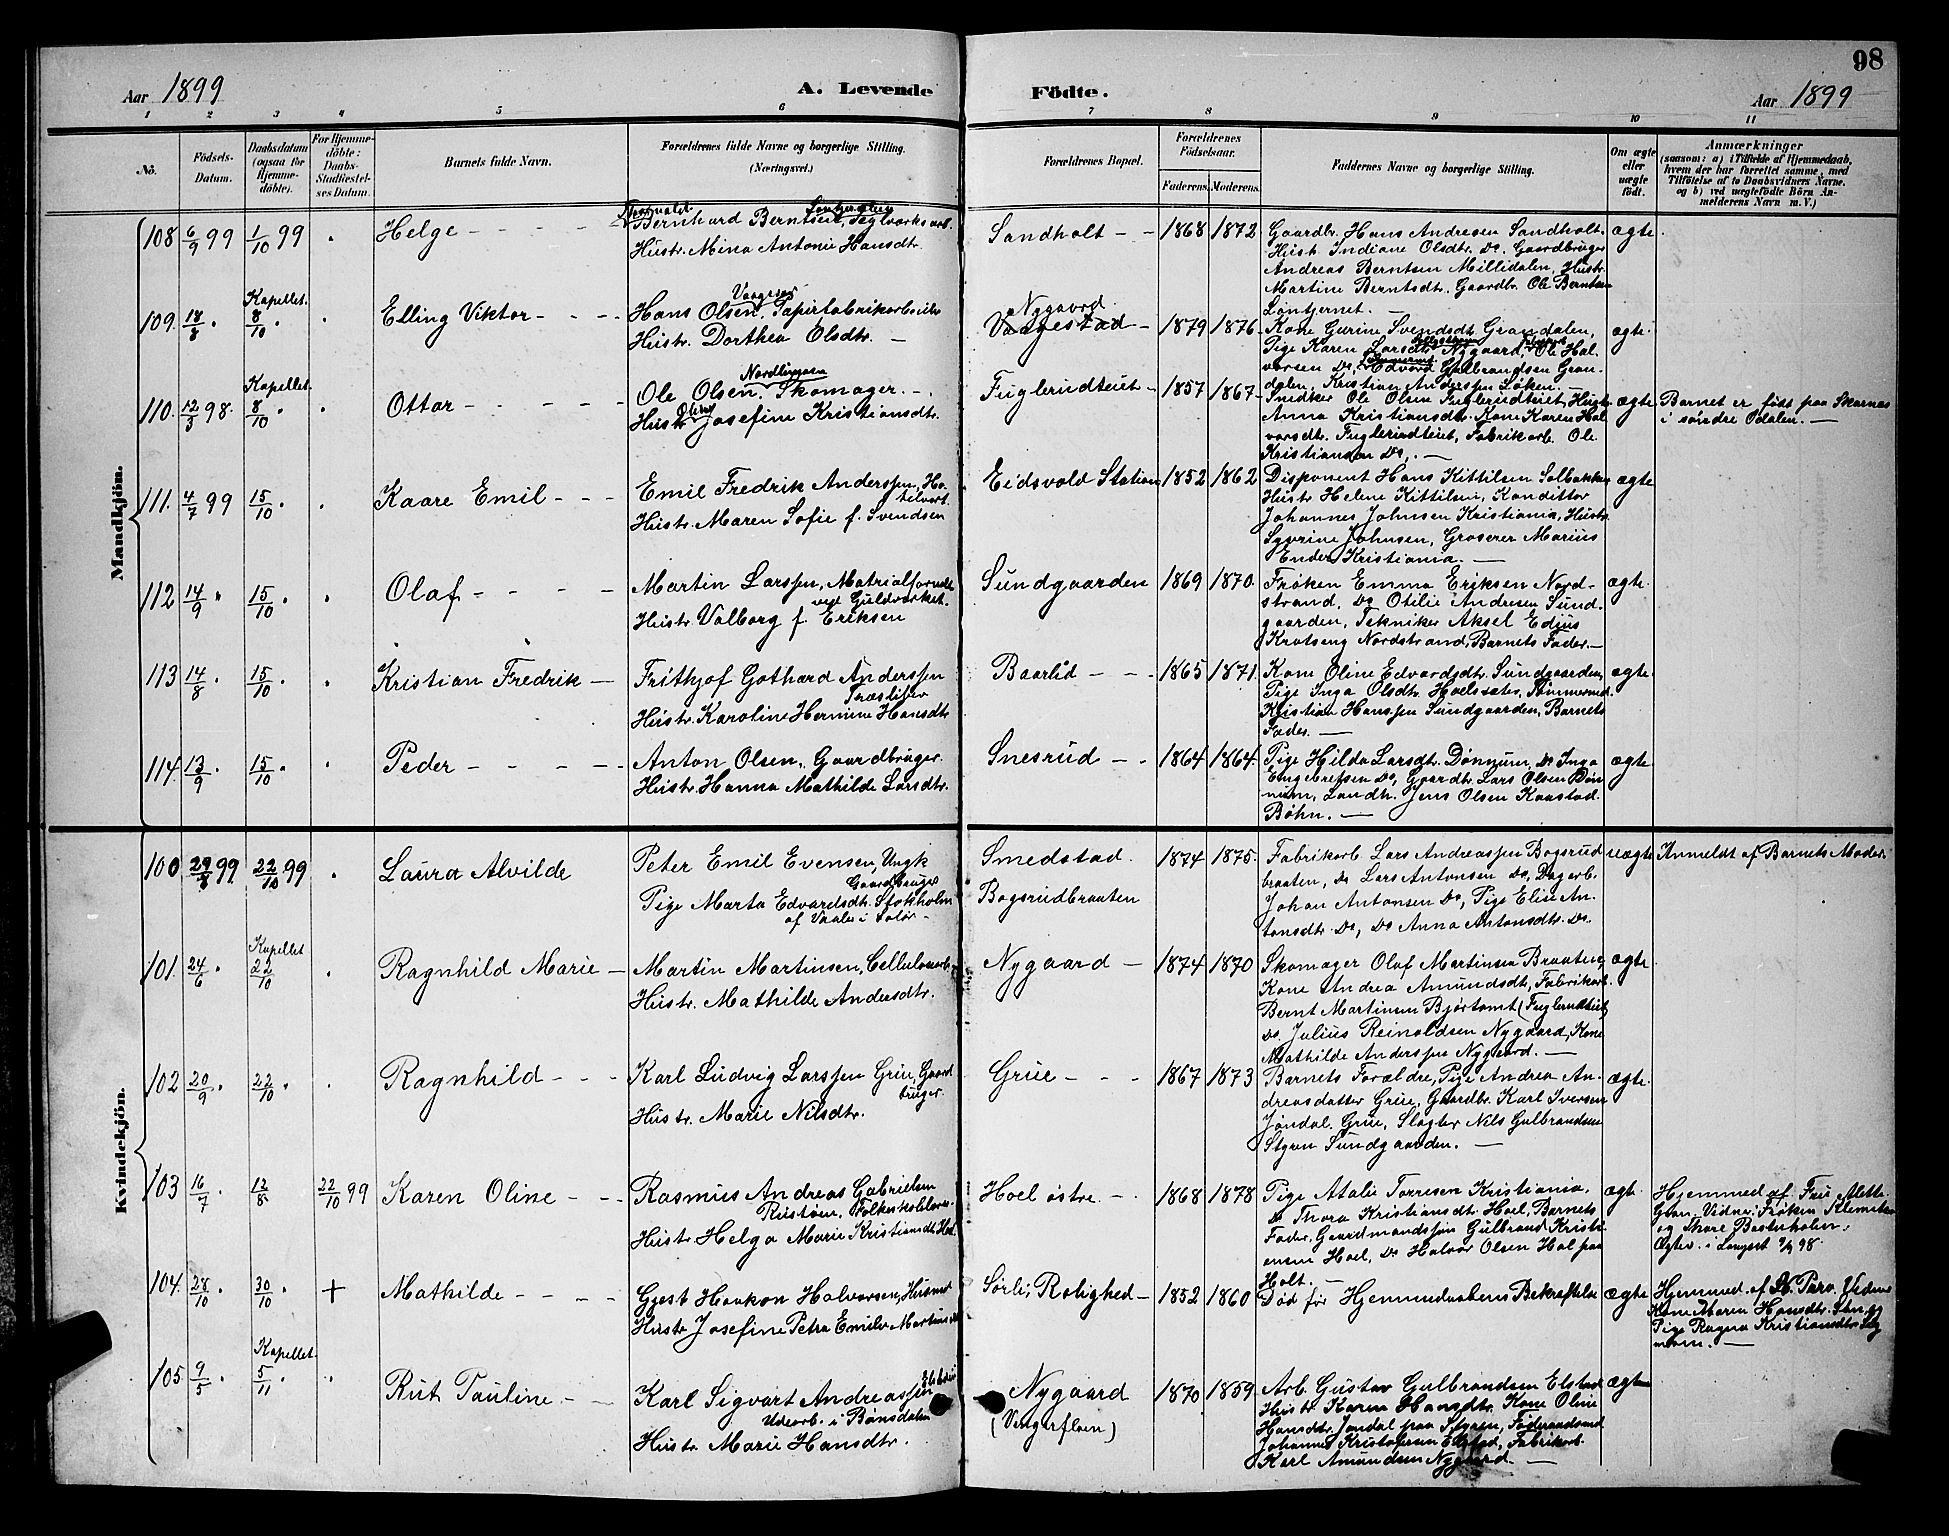 98
Aar 1899 A. Levende Födte. Aar 1899
1 2 3 4 5 6 7 8 9 10 11
No. Födsels-Datum. Daabsdatum (ogsaa for Hjemmedöbte). For Hjemmedöbte: Daabs-Stadfæstelses Datum. Barnets fulde Navn. Forældrenes fulde Navne og borgerlige Stilling. (Næringsvei.) Forældrenes Bopæl. Forældrenes Födselsaar. Faderens. Moderens. Faddernes Navne og borgerlige Stilling. Om ægte eller uægte födt. Anmærkninger (saasom: a) i Tilfælde af Hjemmedaab, hvem der har forrettet samme, med Tilföielse af to Daabsvidners Navne, og b) ved uægtefödte Börn Anmelderens Navn m. V.)
Mandkjön.
108 6/9 99 1/10 99 Helge
Bernhard Berntsen, Teglverksarb.
Hustr. Mina Antonie Hansdtr.
Sandholt 1868 1872
Gaardbr. Hans Andresen Sandholt,
Hustr. Indiane Olsdtr. Do. Gaardbruger
Andreas Berntsen Millidalen, Hustr.
Martine Berntsdtr. Gaardbr. Ole Berntsen
Løntjernet.
ægte
109. 18/8 Kapellet. 8/10 Elling Viktor
Hans Olsen, Papirfabrikarbeider
Hustr. Dorthea Olsdtr.
Nygaard
Vaagestad 1879 1876
Kone Gurine Svendsdt. Grandalen,
Pige Karen Larsdtr. Nygaard, Ole Hal-
vorsen Do, Edvard Gulbrandsen Gran-
dalen, Kristian Anderssen Løken.
ægte
110. 12/3 98. Kapellet. 8/10 Ottar
Nordlingsen
Ole Olsen, Skomager.
Hustr. Josefine Kristiansdtr.
Fuglerudteiet 1857 1867
Snedker Ole Olsen Fuglerudteiet, Hustr.
Anna Kristiansdtr. Kone Karen Hal-
vorsdtr. Fuglerudteiet, Fabrikarb. Ole
Kristiansen Do.
ægte
Barnet er født paa Skarnes
i søndre Odalen.
111. 4/7 99 15/10 Kaare Emil
Emil Fredrik Anderssen, Ho-
telvært
Hustr. Maren Sofie f. Svendsen
Eidsvold Station 1852 1862
Disponent Hans Kittilsen Solbakken
Hustr. Helene Kittilsen, Konditor
Johannes Johnsen Kristiania, Hustr.
Syverine Johnsen, Groserer Marius
Ender Kristiania.
ægte
112 14/9 15/10 Olaf
Martin Larssen, Matrialforvalt
ved Guldverket.
Hustr. Valborg f. Eriksen
Sundgaarden 1869 1870
Frøken Emma Eriksen Nord-
strand, Do Otilie Andresen Sund-
gaarden, Tekniker Aksel Edius
Kratseng Nordstrand, Barnets Fader.
ægte
113 14/8 15/10 Kristian Fredrik
Frithjof Gothard Anderssen
Træsliper
Hustr. Karoline Hermine Hansdtr
Baarlid 1865 1871
Kone Oline Edvardsdt. Sundgaarden,
Pige Inga Olsdtr. Hoelsæter, Tømmermd.
Kristian Hanssen Sundgaarden, Barnets
Fader.
ægte
114. 13/9 15/10 Peder
Anton Olsen, Gaardbruger.
Hustr. Hanna Mathilde Larsdtr.
Snesrud 1864 1864
Pige Hilda Larsdt. Dønnum, Do Inga
Engebretsen Do, Gaardbr. Lars Olsen Døn-
num, Landh. Jens Olsen Kaastad.
Bøhn.
ægte
Kvindekjön.
100 99 22/10 99 Laura Alvilde
Peter Emil Evensen, Ungk
Gaardbruger
Pige Marta Edvardsdt. Stokholm
af Vaaler i Solør
Smedstad.
Bogsrudbraaten
1874 1875
Fabrikarb. Lars Andreassen Bogsrud
braaten, Do Lars Antonsen Do, Dagarb.
Johan Antonsen Do, Pige Elise An-
tonsdtr. Do, Do Anna Antonsdtr. Do.
uægte
Anmeldt af Barnets Moder.
101. 24/6 Kapellet 22/10 Ragnhild Marie
Martin Martinsen, Cellulosearb.
Hustr. Mathilde Andersdtr.
Nygaard 1874 1870
Skomager Olaf Martinsen Braaten,
Kone Andrea Amundsdt, Fabrikarb.
Bernt Martinsen Bjørtomt (Fuglerudteiet)
Do. Julius Reinoldsen Nygaard, Kone
Mathilde Anderssen Nygaard.
ægte
102 20/9 22/10 Ragnhild
Karl Ludvig Larssen Grue, Gaard
bruger.
Hustr. Marie Nilsdtr.
Grue 1867 1873
Barnets Forældre, Pige Andrea An-
dreasdatter Grue, Gaardbr. Karl Iversen
Jøndal, Grue, Slagter Nils Gulbrandsen
Styren Sundgaarden.
ægte
103 16/7 12/8 22/10 99 Karen Oline
Rasmus Andreas Gabrielsen
Rustøen, Folkeskolelærer
Hustr. Helga Marie Kristiansdt. Hoel
Hoel østre 1868 1878
Pige Atalie Torresen Kristiania,
Do Thora Kristiansdt. Hoel, Barnets
Fader, Gaardmandssøn Gulbrand Kristi-
ensen Hoel, Do Halvor Olsen Hol paa
Holt.
ægte
Hjemmed. af Fru Alette
Gran. Vidner: Frøken Klemetsen
og Thore Bastenholen.
Ægtev. i Langset 98.
104. 28/10 30/10 + Mathilde
Gjest Haakon Halvorsen, Husmd
Hustr. Josefine Petra Emilie Martinsdt
Sørli; Rolighed 1852 1860
Død før Hjemmedaabens Bekræftelse
ægte
Hjemmed. af
Kone Maren Hansdtr.
Pige Ragna Kristiansdtr.
105 9/5 Kapellet. 5/11 Rut Pauline
Karl Sigvart Andreassen
Udearb. i Bønsdalen
Hustr. Marie Hansdtr.
Nygaard
(Vengerfloen)
1870 1859
Arb. Gustav Gulbrandsen Elstad
Hustr. Karen Hansdtr. Kone Oline
Hansdtr. Jøndal paa Styren, Føderaadsmd
Johannes Kristofersen Elstad, Fabrikarb.
Karl Amundsen Nygaard.
ægte